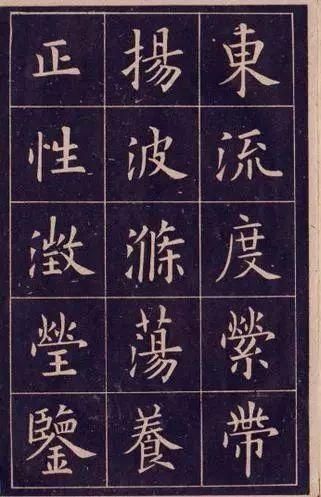 東流度縈帶
揚波滌蕩養
正性澂瑩鑒